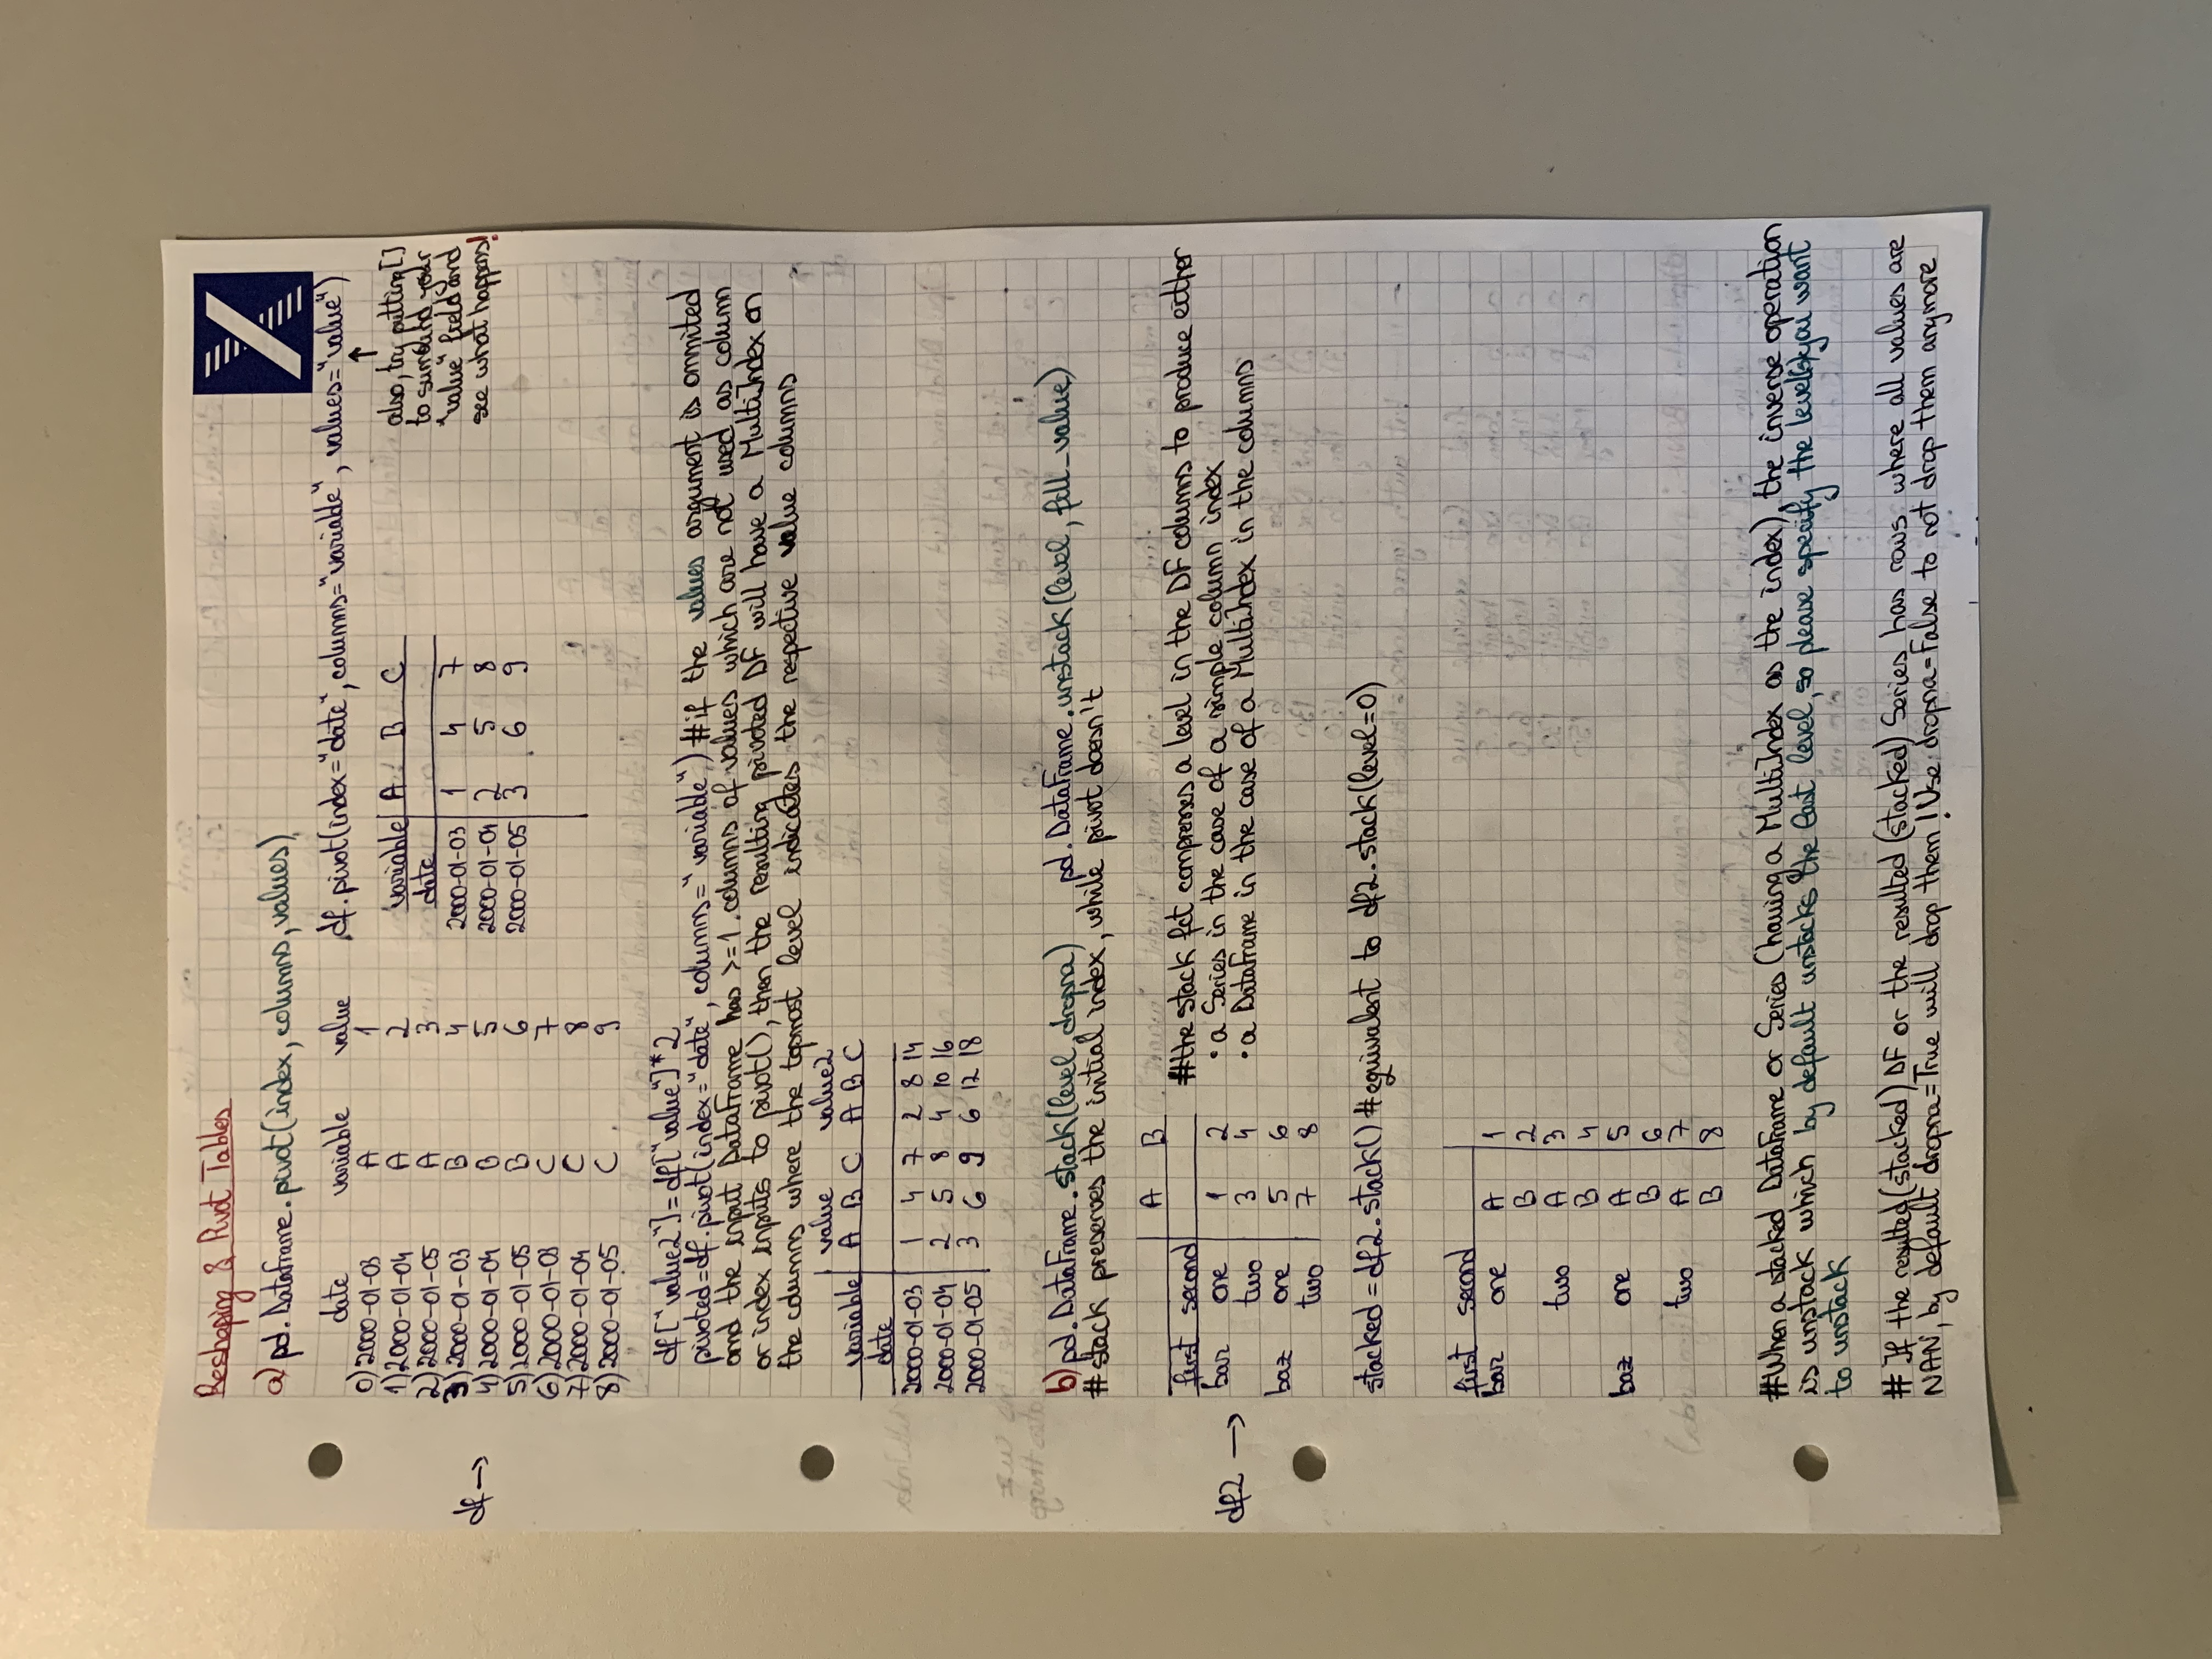 Reshaping & Pivot Tables
a) pd.DataFrame.pivot(index, columns, values)
date variable value
0) 2000-01-03 A 1
1) 2000-01-04 A 2
2) 2000-01-05 A 3
3) 2000-01-03 B 4
4) 2000-01-04 B 5
5) 2000-01-05 B 6
6) 2000-01-03 C 7
7) 2000-01-04 C 8
8) 2000-01-05 C 9
df →
df.pivot(index="date", columns="variable", values="value")
variable A B C
date
2000-01-03 1 4 7
2000-01-04 2 5 8
2000-01-05 3 6 9
↑
also, try putting []
to surround your
"value" field and
see what happens!
df["value2"]=df["value"]*2
pivoted=df.pivot(index="date", columns="variable") #if the values argument is ommited
and the input DataFrame has >=1 columns of values which are not used as column
or index inputs to pivot(), then the resulting pivoted DF will have a MultiIndex on
the columns where the topmost level indicates the respective value columns
value value2
variable A B C A B C
date
2000-01-03 1 4 7 2 8 14
2000-01-04 2 5 8 4 10 16
2000-01-05 3 6 9 6 12 18
b) pd.DataFrame.stack(level, dropna) pd.DataFrame.unstack(level, fill_value)
# stack preserves the initial index, while pivot doesn't
A B
first second
bar one 1 2
two 3 4
baz one 5 6
two 7 8
df2 →
#the stack fct compresses a level in the DF columns to produce either
• a Series in the case of a simple column index
• a DataFrame in the case of a MultiIndex in the columns
stacked = df2.stack() #equivalent to df2.stack(level=0)
first second
bar one A 1
B 2
two A 3
B 4
baz one A 5
B 6
two A 7
B 8
#When a stacked DataFrame or Series (having a MultiIndex as the index), the inverse operation
is unstack which by default unstacks the last level, so please specify the level(s) you want
to unstack
# If the resulted (stacked) DF or the resulted (stacked) Series has rows where all values are
NAN, by default dropna=True will drop them! Use dropna=False to not drop them anymore